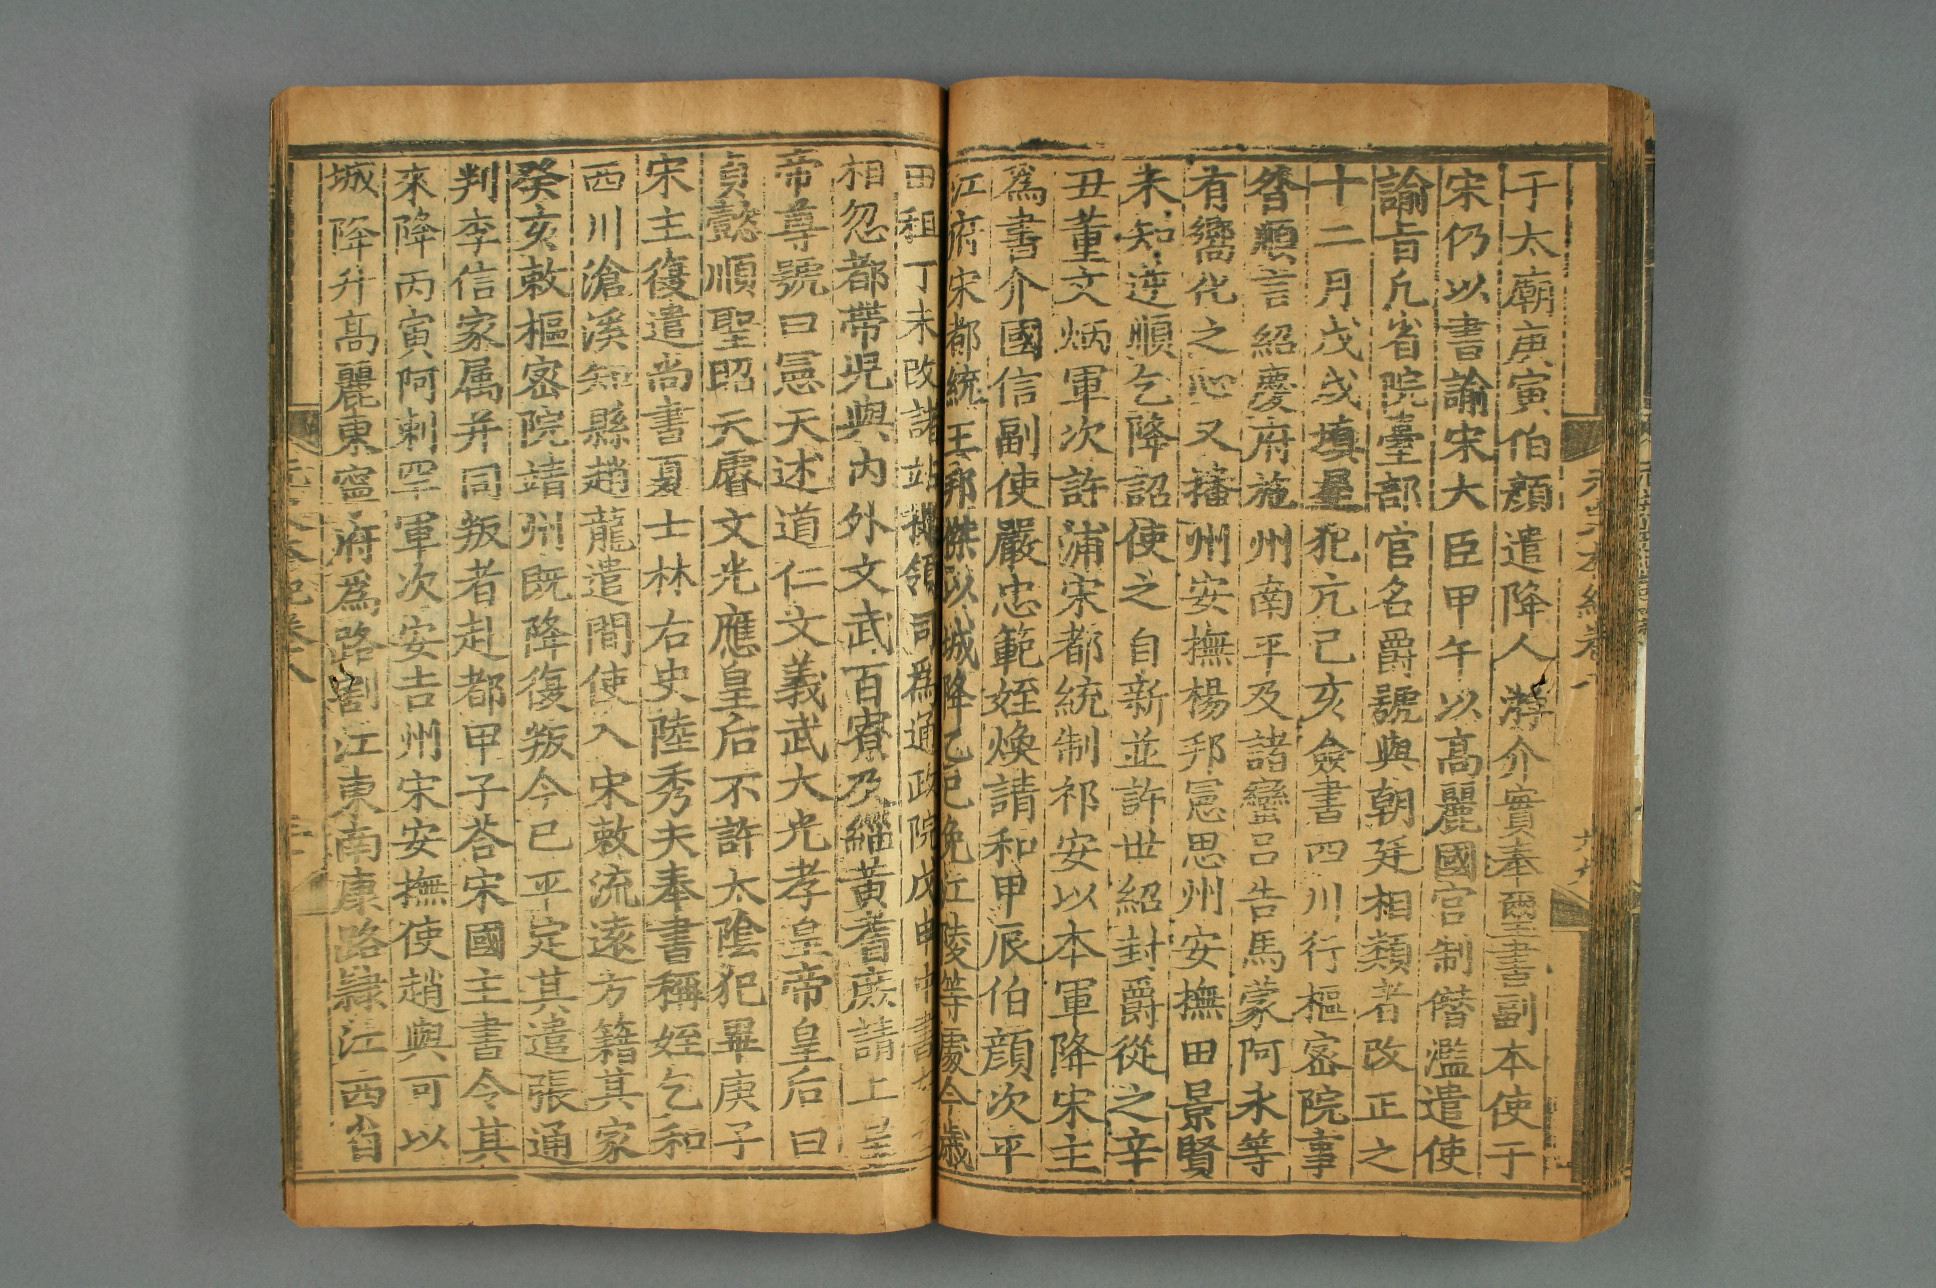 元史本紀卷八
于太廟庚寅伯顏遣降人游介實奉璽書副本使于
宋仍以書諭宋大臣甲午以高麗國官制僭濫遣使
諭旨凡省院臺部官名爵號與朝廷相類者改正之
十二月戊戌填星犯亢己亥僉書四川行樞密院事
昝順言紹慶府施州南平及諸蠻呂告馬蒙阿永等
有嚮化之心又播州安撫楊邦憲思州安撫田景賢
未知逆順乞降詔使之自新並許世紹封爵從之辛
丑董文炳軍次許浦宋都統制祁安以本軍降宋主
爲書介國信副使嚴忠範姪煥請和甲辰伯顏次平
江府宋都統王邦傑以城降乙巳免江陵等處今歲
田租丁未改諸站都統領司爲通政院戊申中書左丞
相忽都帶兒與內外文武百寮及緇黃耆庶請上皇
帝尊號曰憲天述道仁文義武大光孝皇帝皇后曰
貞懿順聖昭天睿文光應皇后不許太陰犯畢庚子
宋主復遣尚書夏士林右史陸秀夫奉書稱姪乞和
西川滄溪知縣趙龍遣間使入宋敕流遠方籍其家
癸亥敕樞密院靖州既降復叛今已平定其遣張通
判李信家属并同叛者赴都甲子荅宋國主書令其
來降丙寅阿剌罕軍次安吉州宋安撫使趙與可以
城降升高麗東寧府爲路割江東南康路隸江西省
元史本紀卷八